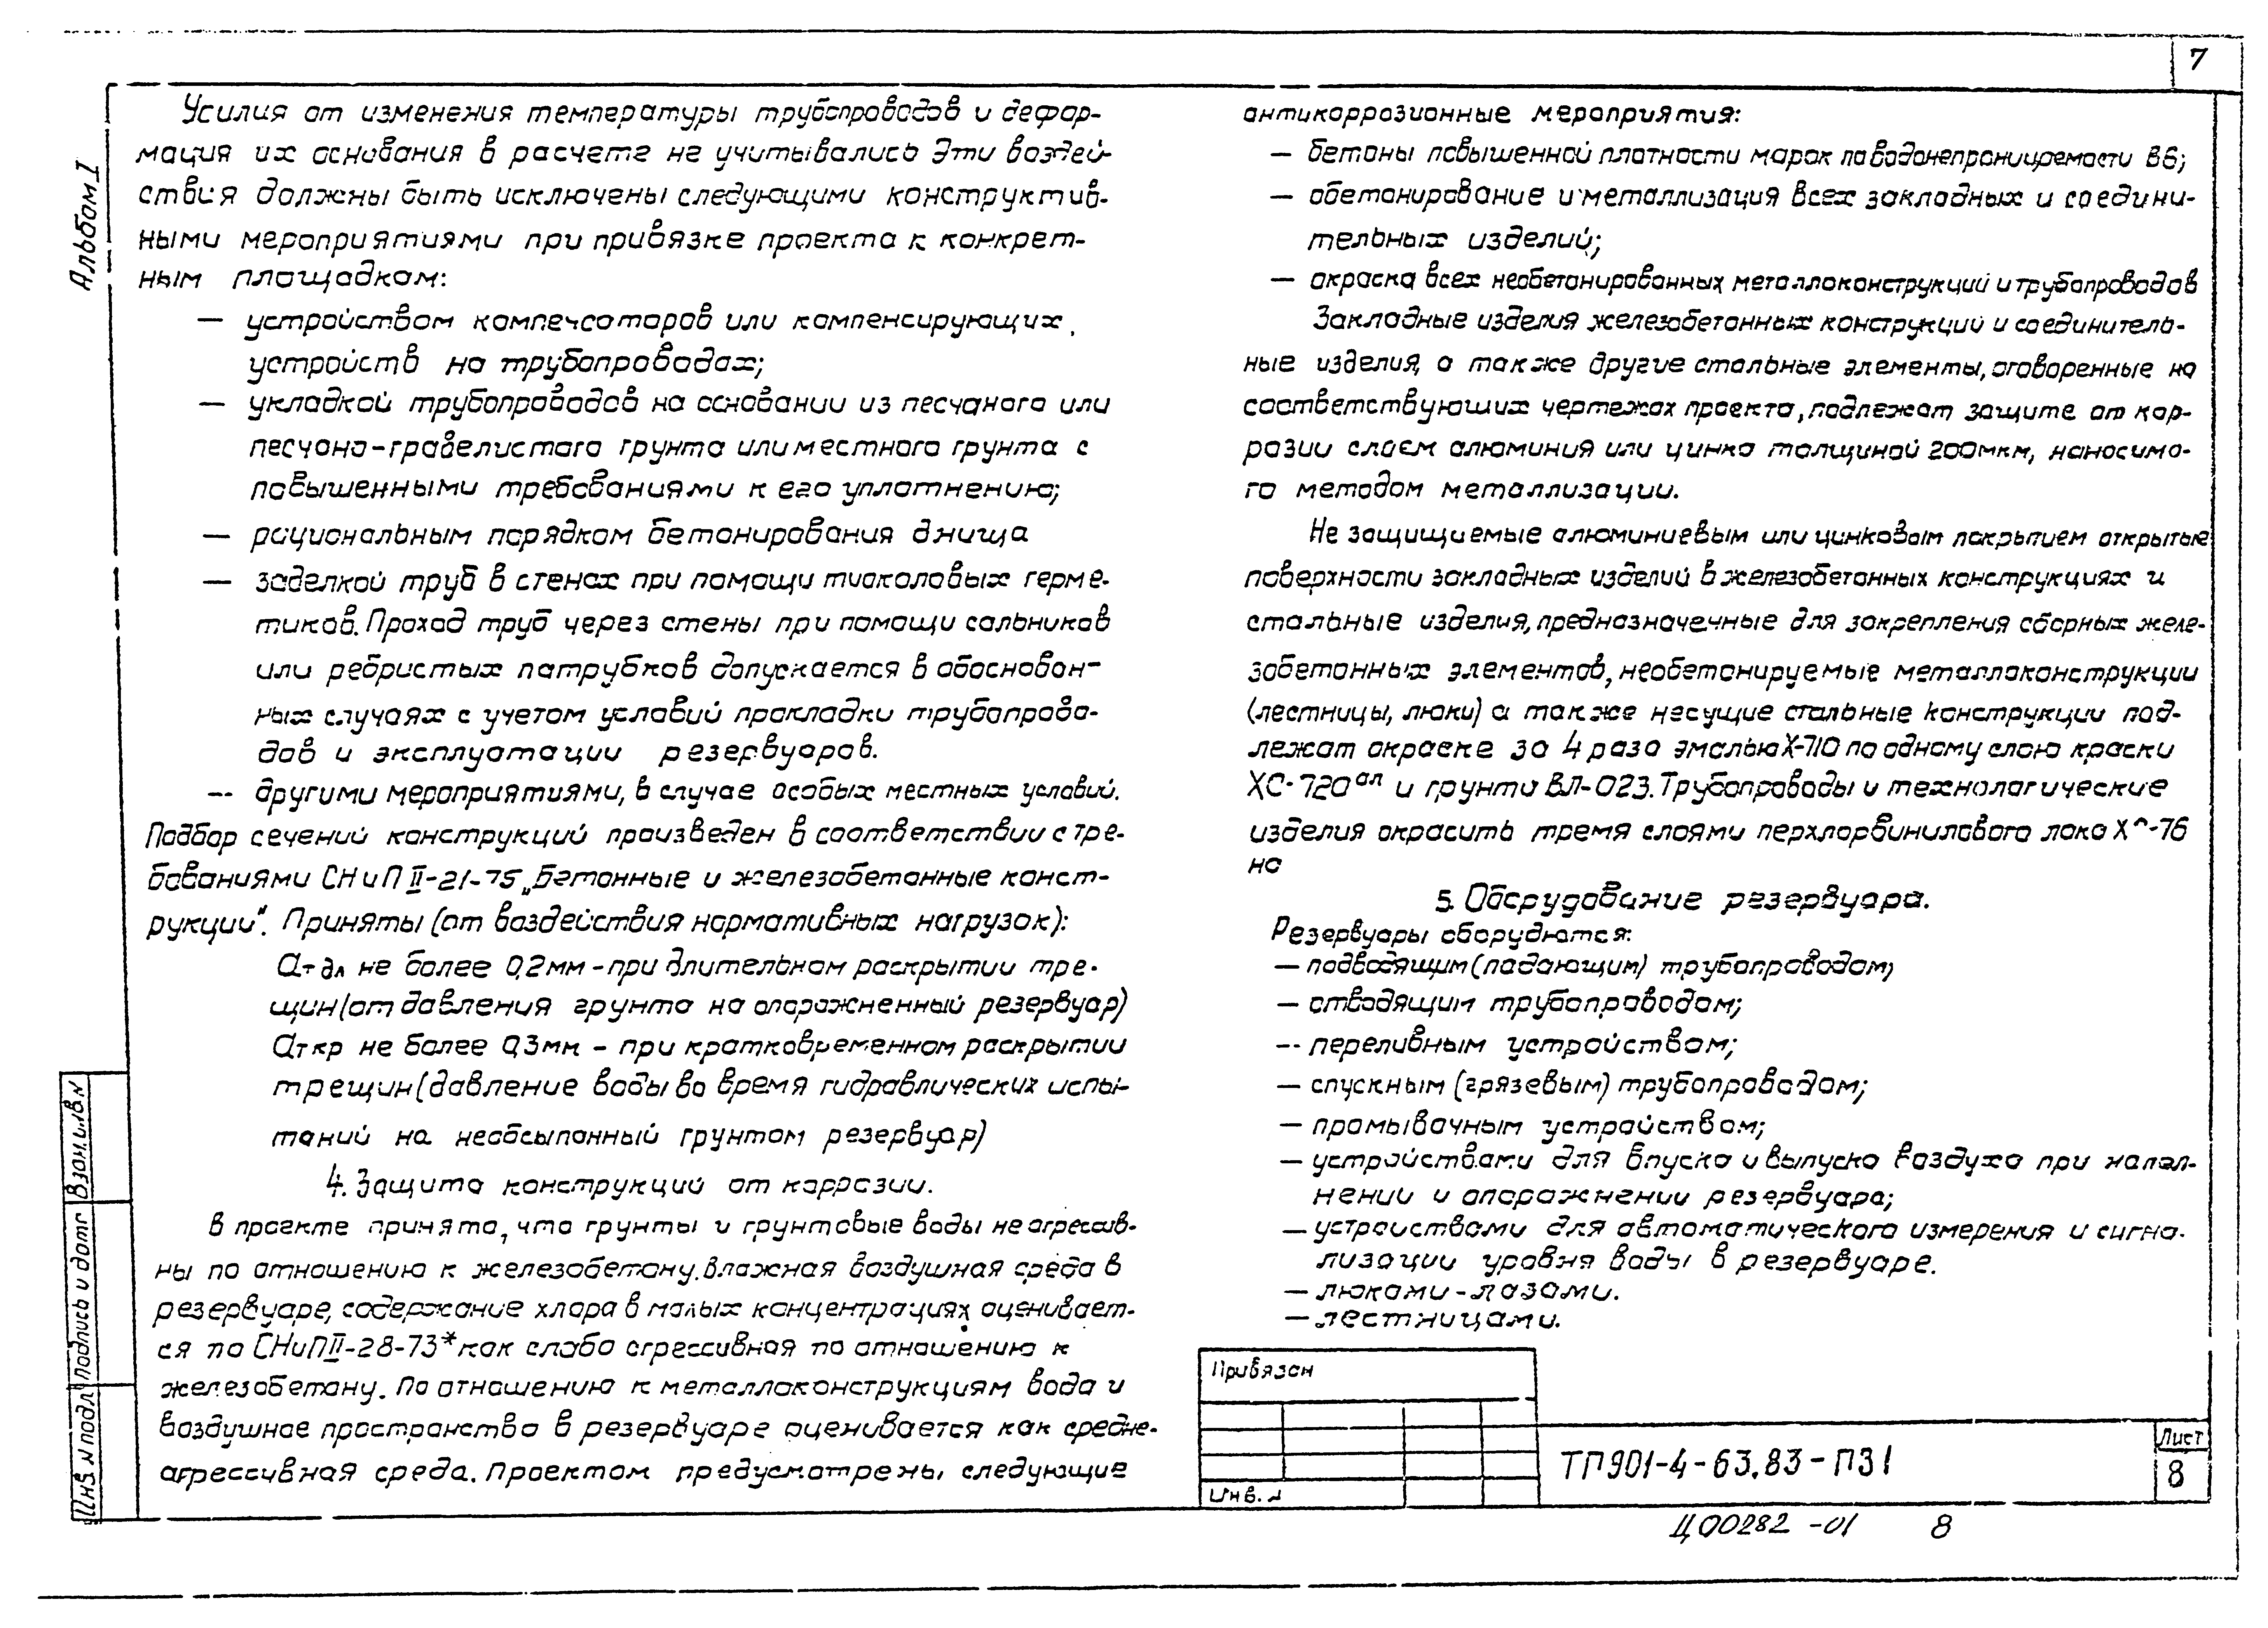 7
Альбом I
Усилия от изменения температуры трубопроводов и дефор-
мация их основания в расчете не учитывались Эти воздей-
ствия должны быть исключены следующими конструктив-
ными мероприятиями при привязке проекта к конкрет-
ным площадкам:
— устройством компенсаторов или компенсирующих
устройств на трубопроводах;
— укладкой трубопроводов на основании из песчаного или
песчано-гравелистого грунта или местного грунта с
повышенными требованиями к его уплотнению;
— рациональным порядком бетонирования днища
— заделкой труб в стенах при помощи тиоколовых герме-
тиков. Проход труб через стены при помощи сальников
или ребристых патрубков допускается в обоснован-
ных случаях с учетом условий прокладки трубопрово-
дов и эксплуатации резервуаров.
-- другими мероприятиями, в случае особых местных условий.
Подбор сечений конструкций произведен в соответствии с тре-
бованиями СНиП II-21-75 „Бетонные и железобетонные конст-
рукции". Приняты (от воздействия нормативных нагрузок):
aт дл не более 0,2мм - при длительном раскрытии тре-
щин (от давления грунта на опорожненный резервуар)
aт кр не более 0,3мм - при кратковременном раскрытии
трещин (давление воды во время гидравлических испы-
таний на необсыпанный грунтом резервуар)
4. Защита конструкций от коррозии.
В проекте принято, что грунты и грунтовые воды не агрессив-
ны по отношению к железобетону. Влажная воздушная среда в
резервуаре, содержание хлора в малых концентрациях оценивает-
ся по СНиП II-28-73* как слабо агрессивная по отношению к
железобетону. По отношению к металлоконструкциям вода и
воздушное пространство в резервуаре оценивается как средне-
агрессивная среда. Проектом предусмотрены следующие
антикоррозионные мероприятия:
— бетоны повышенной плотности марок по водонепроницаемости В6;
— обетонирование и металлизация всех закладных и соедини-
тельных изделий;
— окраска всех необетонированных металлоконструкций и трубопроводов
Закладные изделия железобетонных конструкций и соединитель-
ные изделия, а также другие стальные элементы, оговоренные на
соответствующих чертежах проекта, подлежат защите от кор-
розии слоем алюминия или цинка толщиной 200мкм, наносимо-
го методом металлизации.
Не защищаемые алюминиевым или цинковым покрытием открытые
поверхности закладных изделий в железобетонных конструкциях и
стальные изделия, предназначенные для закрепления сборных желе-
зобетонных элементов, необетонируемые металлоконструкции
(лестницы, люки) а также несущие стальные конструкции под-
лежат окраске за 4 раза эмалью Х-710 по одному слою краски
ХС-720ал и грунту ВЛ-023. Трубопроводы и технологические
изделия окрасить тремя слоями перхлорвинилового лака -76
на
5. Оборудование резервуара.
Резервуары оборудются:
— подводящим (падающим) трубопроводом;
— отводящим трубопроводом;
-- переливным устройством;
— спускным (грязевым) трубопроводом;
— промывочным устройством;
— устройствами для впуска и выпуска воздуха при напол-
нении и опорожнении резервуара;
— устройствами для автоматического измерения и сигна-
лизации уровня воды в резервуаре.
— люками-лазами.
— лестницами.
Взам. инв. N
Подпись и дата
Инв. N подл.
Привязан
Инв. N
ТП 901-4-63.83-ПЗ1
Лист
8
Ц00282 -01 8